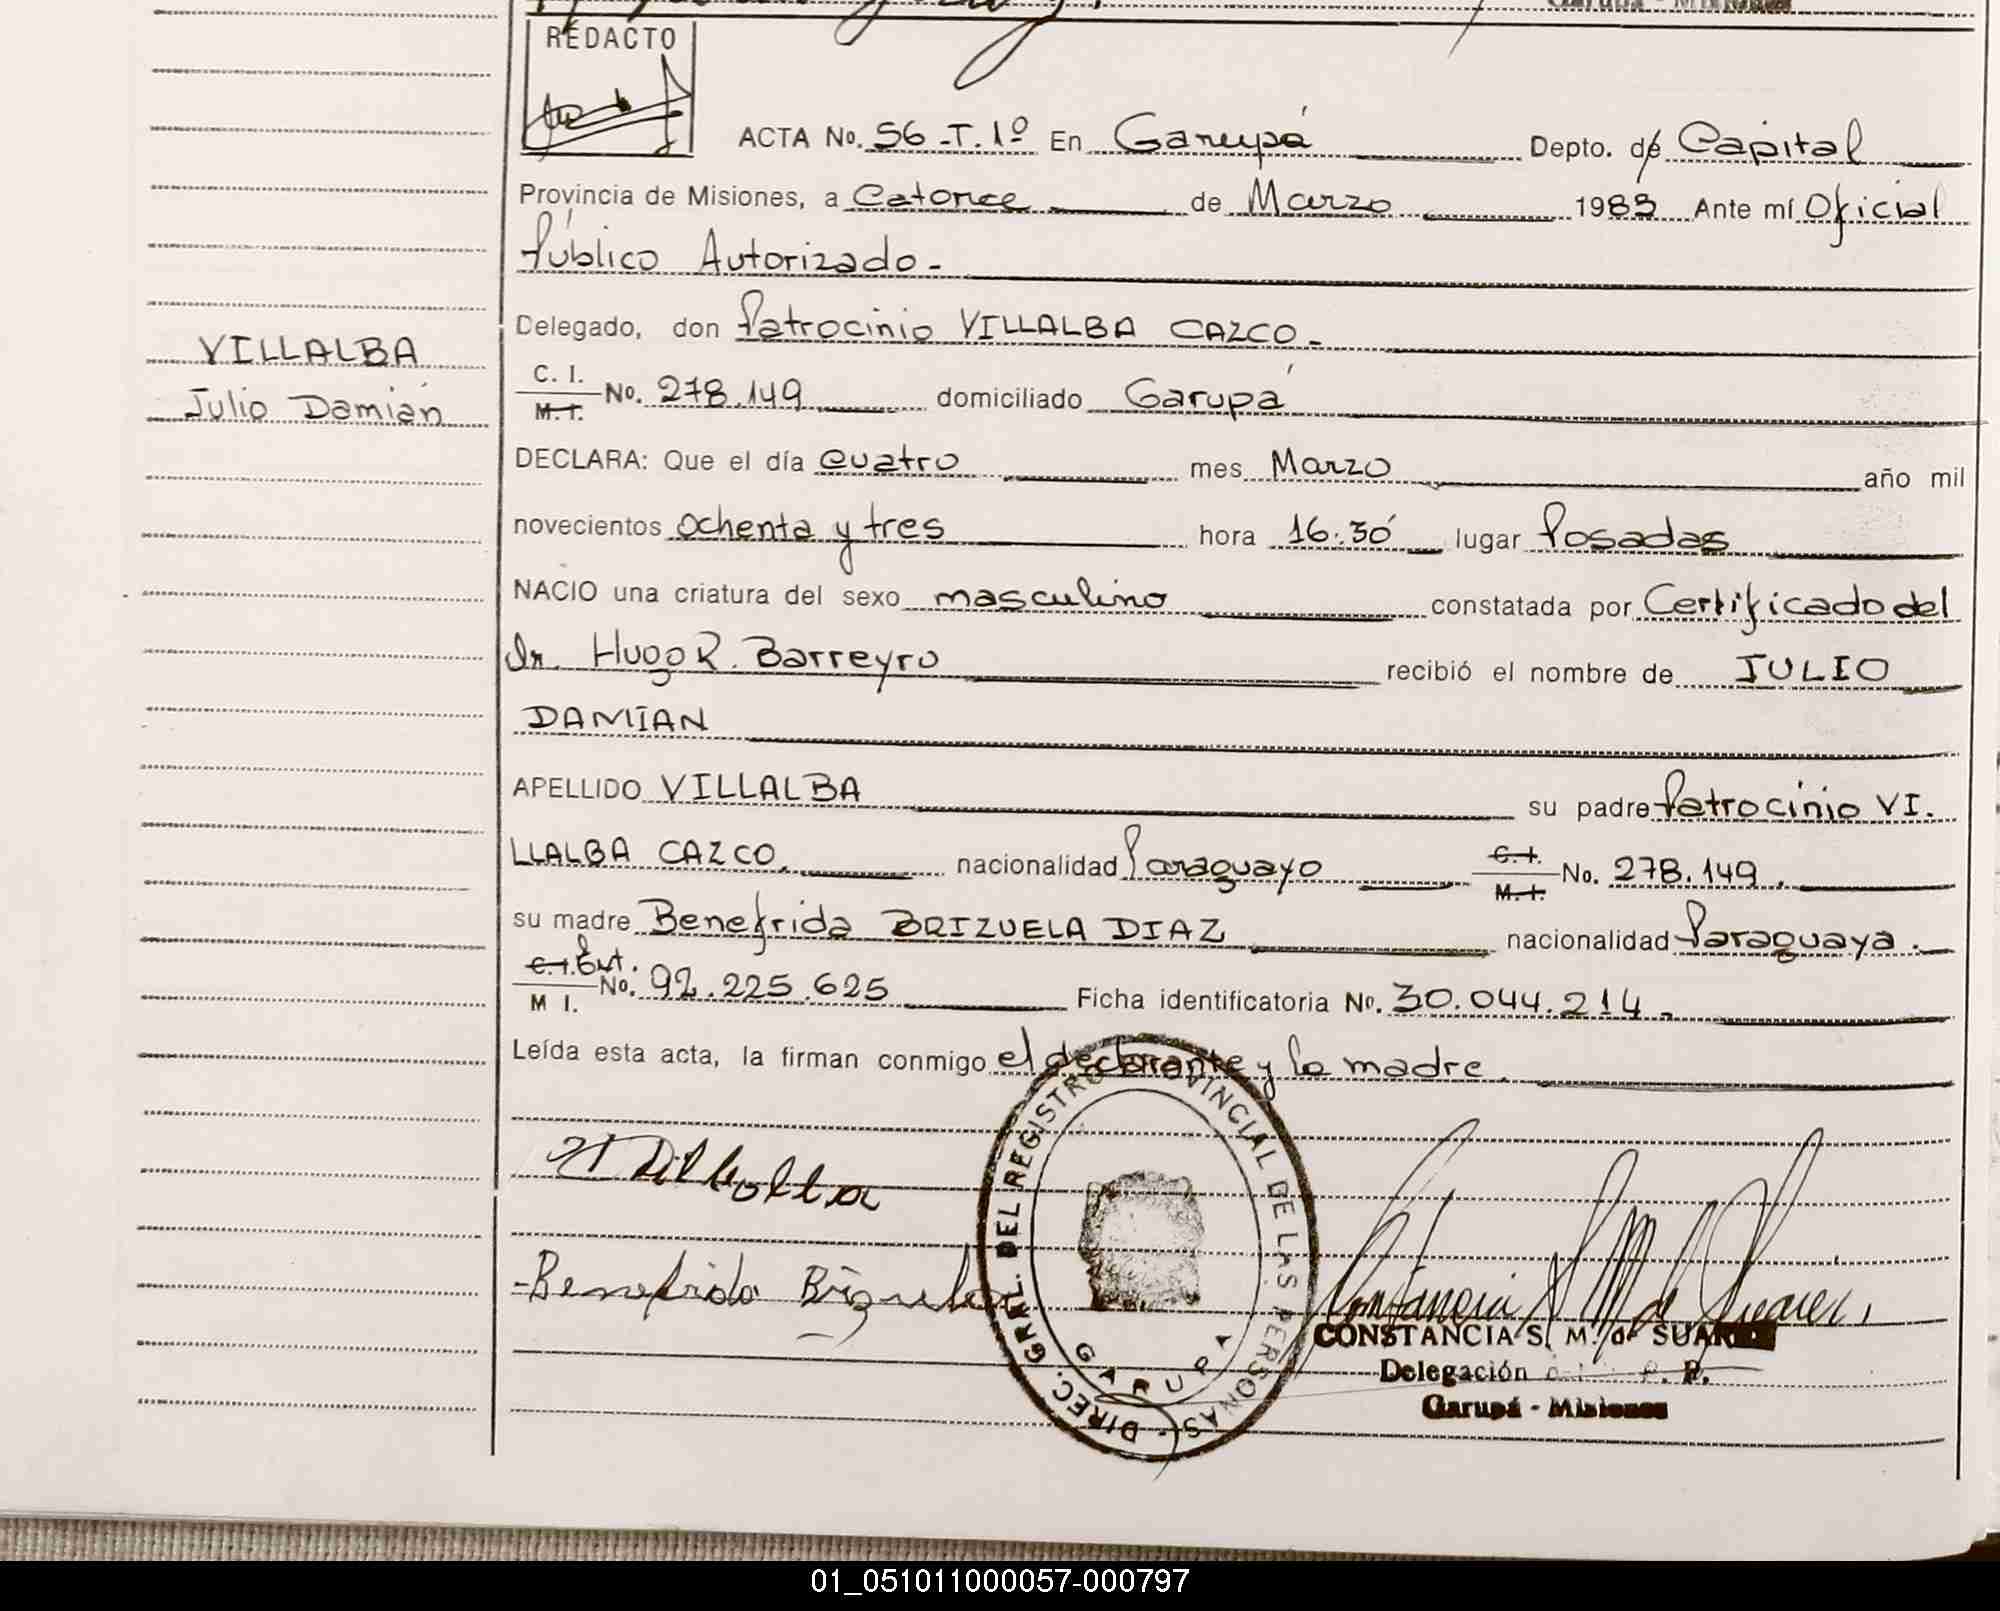 REDACTO
ACTA No. 56-T. 1º En Garupá Depto. de Capital
Provincia de Misiones, a Catorce de Marzo 1983 Ante mí Oficial
Público Autorizado-
Delegado, don Patrocinio VILLALBA CAZCO.-
VILLALBA
Julio Damián
C. I.
M. I. No. 278.149 domiciliado Garupá
DECLARA: Que el día cuatro mes Marzo año mil
novecientos ochenta y tres hora 16:30 lugar Posadas
NACIO una criatura del sexo masculino constatada por Certificado del
Dr. Hugo R. Barreyro recibió el nombre de JULIO
DAMIÁN
APELLIDO VILLALBA su padre Patrocinio VI.
LLALBA CAZCO. nacionalidad Paraguayo C. I.
M. I. No. 278.149.
su madre Benefrida BRIZUELA DIAZ nacionalidad Paraguaya.
C. I. Ext.
M I. No. 92.225.625 Ficha identificatoria No. 30.044.214.-
Leída esta acta, la firman conmigo el declarante y la madre.
Villalba
-Benefrida Brizuela
DIREC. GRAL. DEL REGISTRO PROVINCIAL DE LAS PERSONAS -
GARUPA
Constancia S M de Suarez
CONSTANCIA S. M. de SUAREZ
Delegación R. P.
Garupá - Misiones
01_051011000057-000797